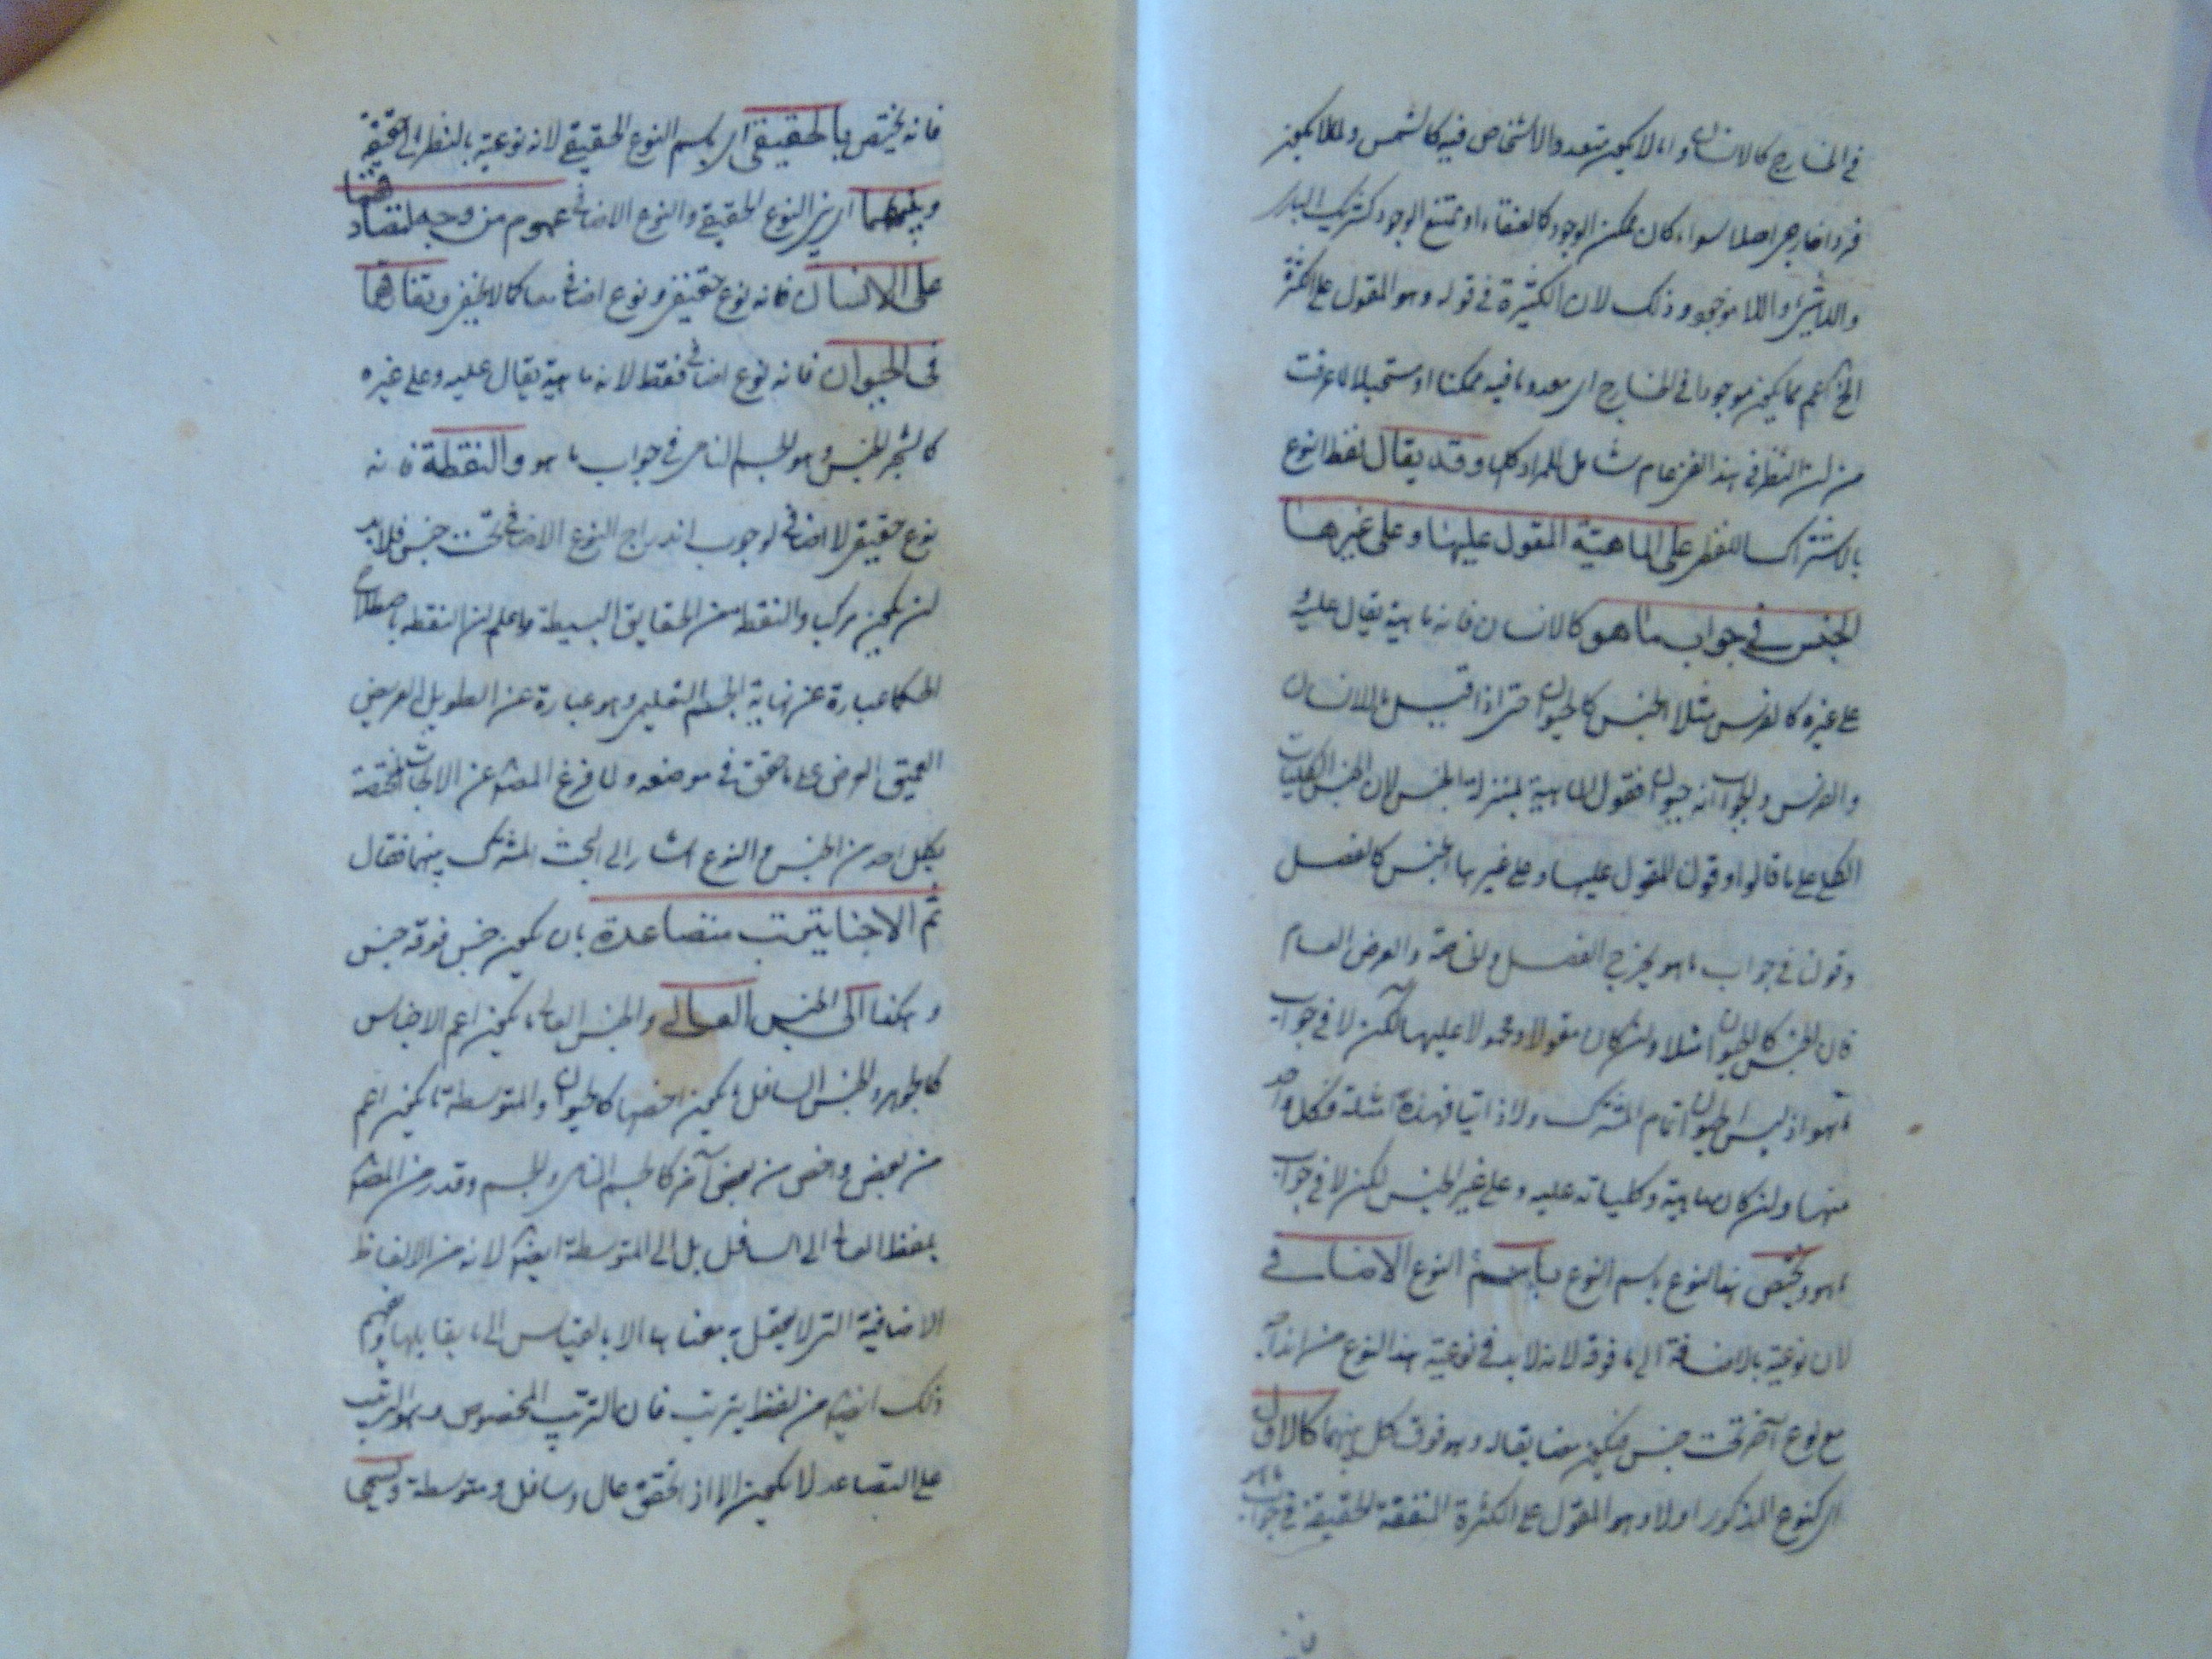 في الخارج كالانسان او لا يكون متعدد الاشخاص فيه كالشمس ولا يكون
فرد خارجي اصلا سواء كان ممكن الوجود كالعنقاء او ممتنع الوجود كشريك الباري
واللاشئ واللا موجود وذلك لان الكثيرة في قوله وهو المقول على الكثرة
اعم مما يكون موجودا في الخارج او معدوما فيه ممكنا او مستحيلا لما عرفت
من ان النظر في هذا الفن عام شامل للمواد كلها وقد يقال لفظ النوع
بالاشتراك اللفظي على الماهية المقول عليها وعلى غيرها
الجنس في جواب ما هو كالانسان فانه ماهية يقال عليه و
على غيره كالفرس مثلا الجنس كالحيوان حتى اذا قيل ما الانسان
والفرس فالجواب انه حيوان فقوله الماهية بمنزلة الجنس لان الجنس الكليات
الكلي على ما قالوا وقوله المقول عليها وعلى غيرها الجنس كالفصل
وقوله في جواب ما هو يخرج الفصل والخاصة والعرض العام
فان الجنس كالحيوان مثلا وان كان مقولا ومحمولا عليها لكن لا في جواب
ما هو اذ ليس الحيوان تمام المشترك ولا ذاتيا فهذه امثلة فكل واحد
منها وان كان ماهية وكلياته عليه وعلى غير الجنس لكن لا في جواب
ما هو ويختص هذا النوع باسم النوع باسم النوع الاضافي
لان نوعية بالاضافة الى ما فوقه لانه لا بد في نوعية هذا النوع من اندراجه
مع نوع آخر تحت جنس فيكون مضايفا له وهو فوق كل منهما كالاول
اي كنوع المذكور اولا وهو المقول على الكثرة المتفقة الحقيقة في جواب ما هو
فانه يختص بالحقيقي اي باسم النوع الحقيقي لانه نوعية بالنظر الى حقيقة
وبينهما اي بين النوع الحقيقي والنوع الاضافي عموم من وجه لتصادقهما
على الانسان فانه نوع حقيقي ونوع اضافي معا كما لا يخفى وتفارقهما
في الحيوان فانه نوع اضافي فقط لانه ماهية يقال عليه وعلى غيره
كالشجر الجنس وهو الجسم النامي في جواب ما هو والنقطة فانه
نوع حقيقي لا اضافي لوجوب اندراج النوع الاضافي تحت جنس فلا بد
ان يكون مركبا والنقطة من الحقايق البسيطة واعلم ان النقطة باصطلاح
الحكما عبارة عن نهاية الجسم التعليمي وهو عبارة عن الطويل العريض
العميق العرضي على ما حقق في موضعه ولما فرغ المصنف عن الابحاث المختصة
بكل واحد من الجنس والنوع اشار الى البحث المشترك بينهما فقال
ثم الاجناس يترتب متصاعدة بان يكون جنس فوقه جنس
وهكذا الى الجنس العالي والجنس العالي ما يكون اعم الاجناس
كالجوهر والجنس السافل ما يكون اخصها كالحيوان والمتوسطة ما يكون اعم
من بعض واخص من بعض آخر كالجسم النامي والجسم وقد رمز المصنف
بلفظ العالي الى السافل بل الى المتوسطة ايضا لانه من الالفاظ
الاضافية التي لا يعقل معناها الا بالقياس الى ما يقابلها وفهم
ذلك ايضا من لفظ يترتب فان الترتب المخصوص وهو الترتيب
على التصاعد لا يكون الا اذا تحقق عال وسافل ومتوسطة ويسمى